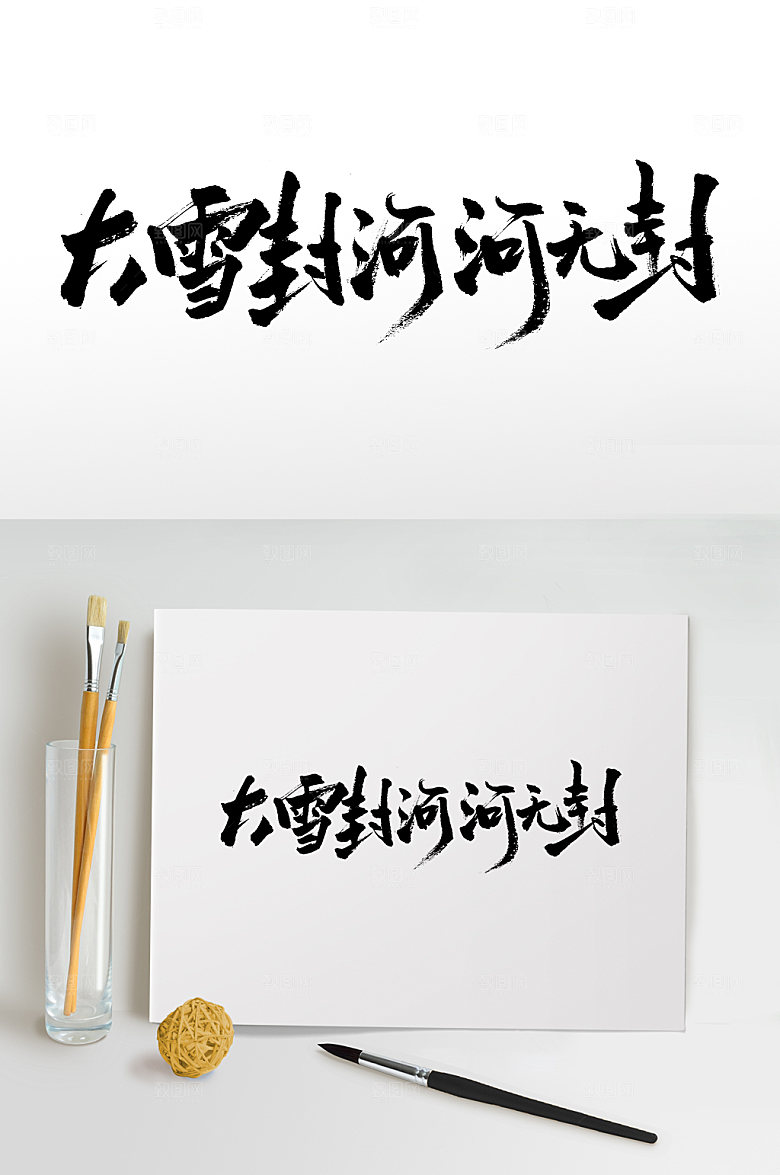 大雪封河河无封
大雪封河河无封